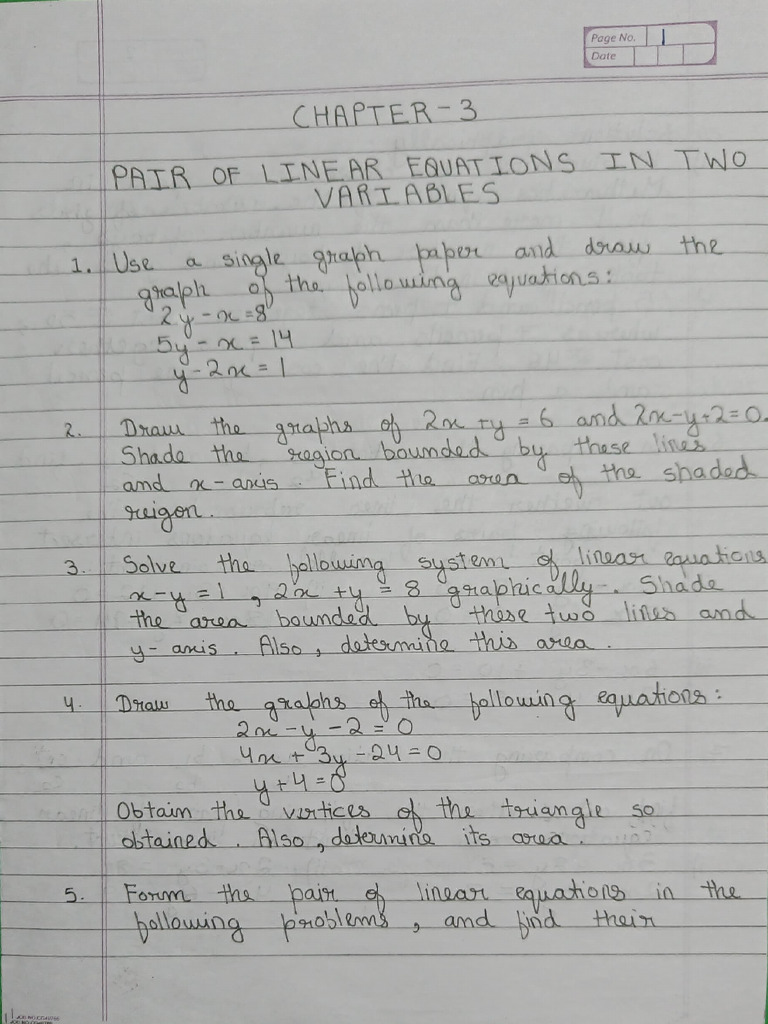 Page No. 1
Date
CHAPTER-3
PAIR OF LINEAR EQUATIONS IN TWO
VARIABLES
1. Use a single graph paper and draw the
graph of the following equations:
2y-x=8
5y-x=14
y-2x=1
2. Draw the graphs of 2x+y=6 and 2x-y+2=0.
Shade the region bounded by these lines
and x-axis. Find the area of the shaded
reigon.
3. Solve the following system of linear equations
x-y=1, 2x+y=8 graphically. Shade
the area bounded by these two lines and
y-axis. Also, determine this area.
4. Draw the graphs of the following equations:
2x-y-2=0
4x+3y-24=0
y+4=0
Obtain the vertices of the triangle so
obtained. Also, determine its area.
5. Form the pair of linear equations in the
following problems, and find their